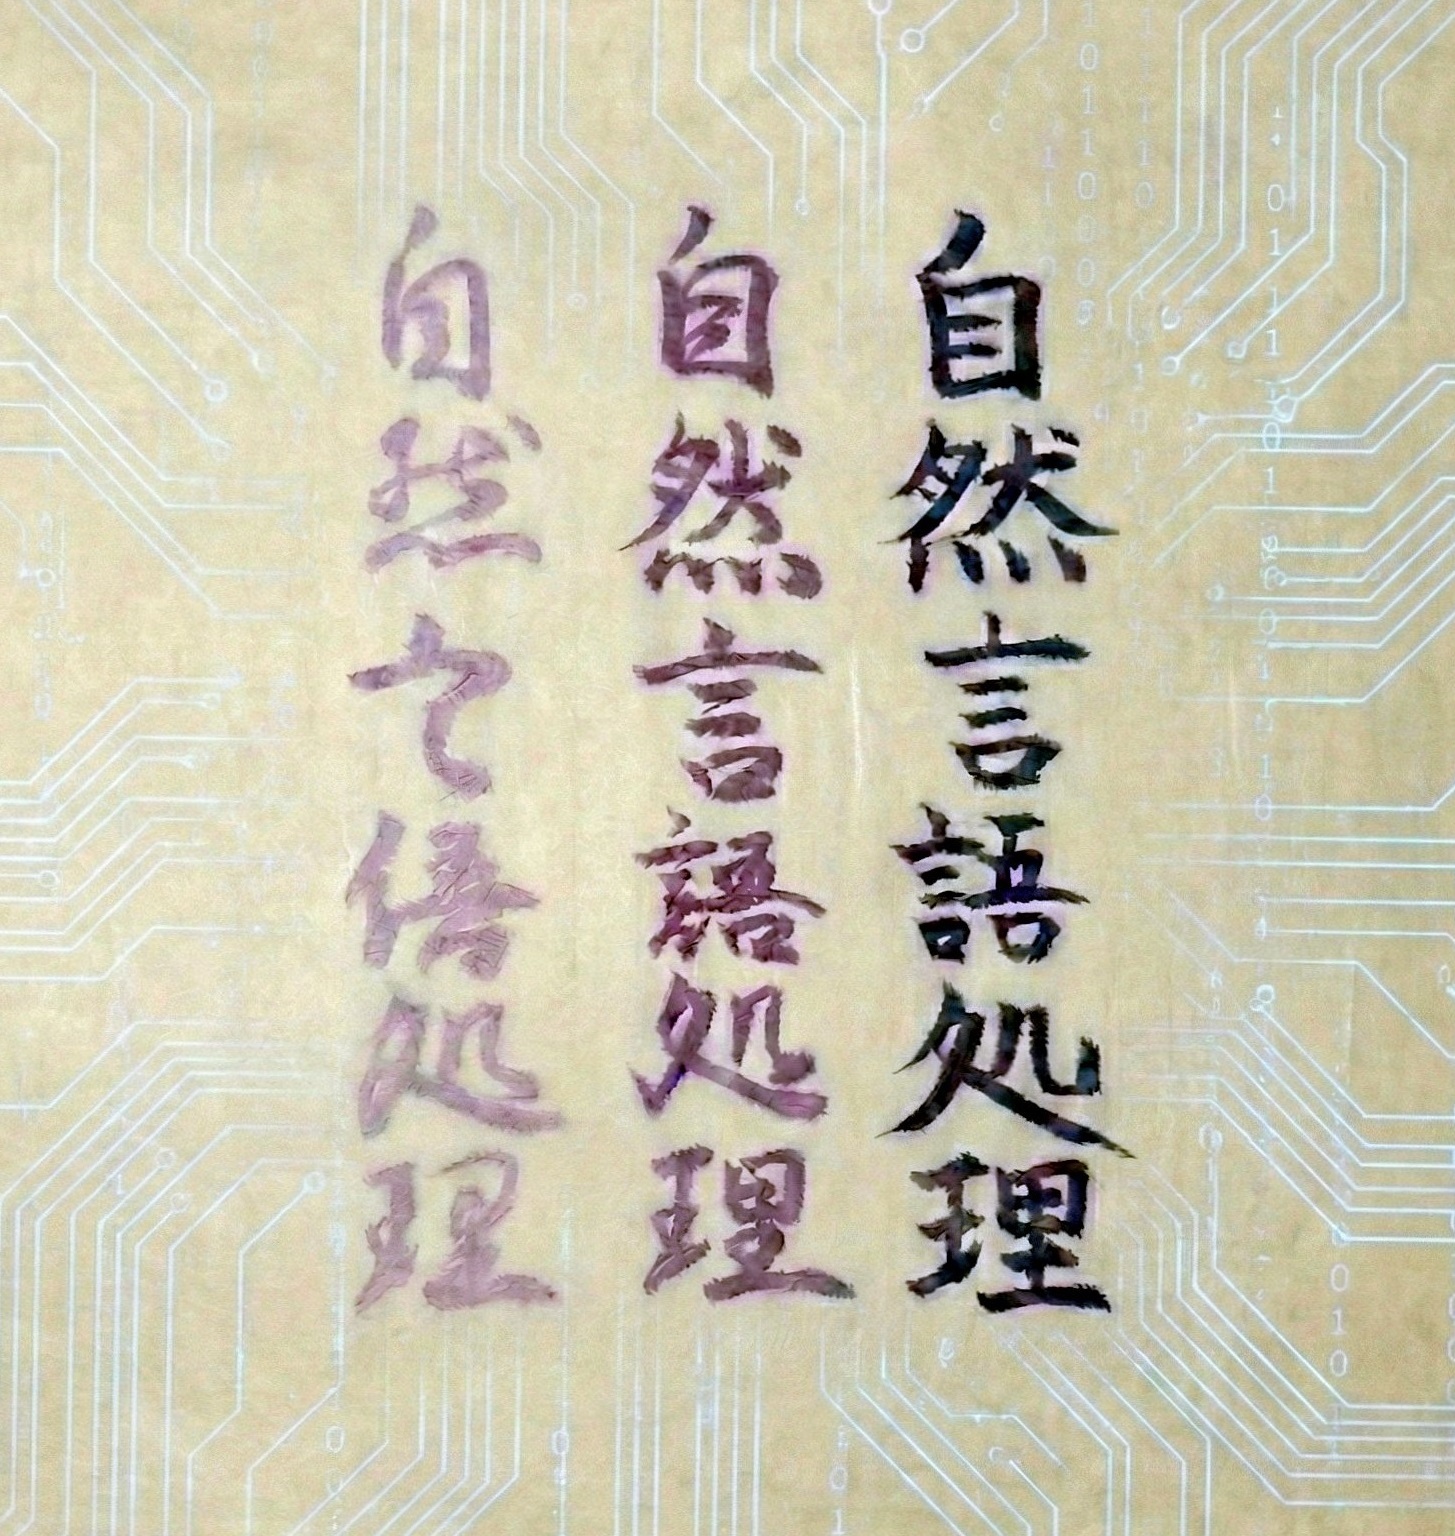 自然言語処理
自然言語処理
自然言語処理